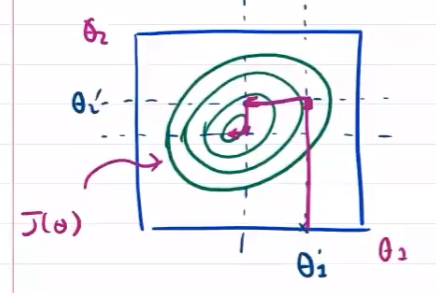 θ₂
θ₂'
J(θ)
1
θ₁'
θ₁